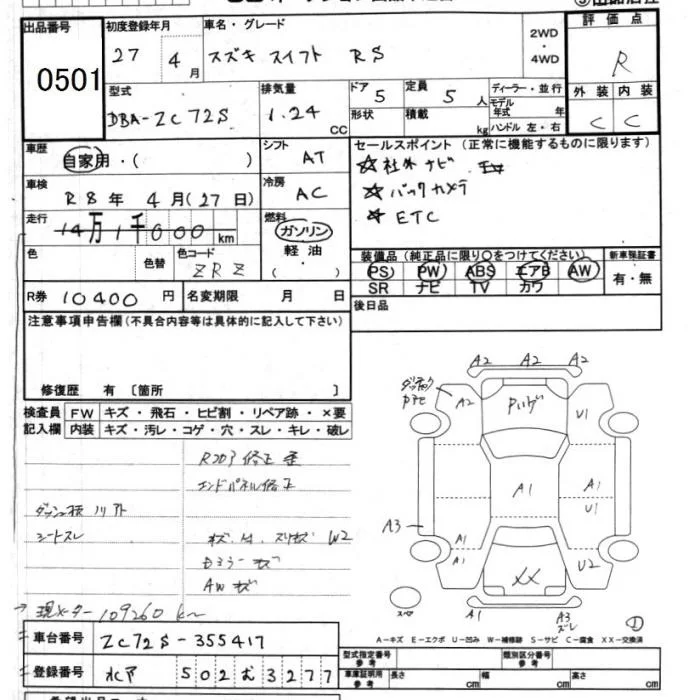 出品番号
0501
初度登録年月
27 4 月
車名・グレード
スズキ スイフト RS
2WD
・
4WD
評価点
R
外装 内装
C C
型式
DBA-ZC72S
排気量
1.24
CC
ドア 5
定員 5 人
形状
積載
kg
ディーラー・並行
モデル
年式 年
ハンドル 左・右
車歴
自家用・( )
シフト
AT
車検
R8年 4月(27日)
冷房
AC
走行
14万1千000 km
燃料
ガソリン
・
軽油
・
( )
色
色替
色コード
ZRZ
R券 10400 円
名変期限 月 日
セールスポイント(正常に機能するものに限ります)
☆社外ナビ
☆バックカメラ
☆ETC
装備品(純正品に限り○をつけてください)
新車保証書
PS PW ABS エアB AW
SR ナビ TV カワ
有・無
後日品
注意事項申告欄(不具合内容等は具体的に記入して下さい)
修復歴 有 〔箇所 〕
検査員
記入欄
FW キズ・飛石・ヒビ割・リペア跡・×要
内装 キズ・汚レ・コゲ・穴・スレ・キレ・破レ
エンドパネル修正
シートスレ
W2
AWキズ
→ 現メーター109260km
車台番号 ZC72S-355417
登録番号 502 む 3277
A2 A2 A2
A2
U1
A1
A1
U1
A3
A1
A1
XX
U2
スペア
A1
A3
スレ
①
A－キズ E－エクボ U－凹み W－補修跡 S－サビ C－腐食 XX－交換済
型式指定番号
参考
類別区分番号
参考
車庫証明用
参考
長さ cm 幅 cm 高さ cm